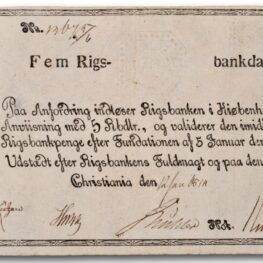 No.
Fem Rigs- bankda
Paa Anfordring indløser Rigsbanken i Kiøbenh
Anviisning med 5 Rbdlr., og validerer den imid
Rigsbankpenge efter Fundationen af 5 Januar
Udstædt efter Rigsbankens Fuldmagt og paa den
Christiania den